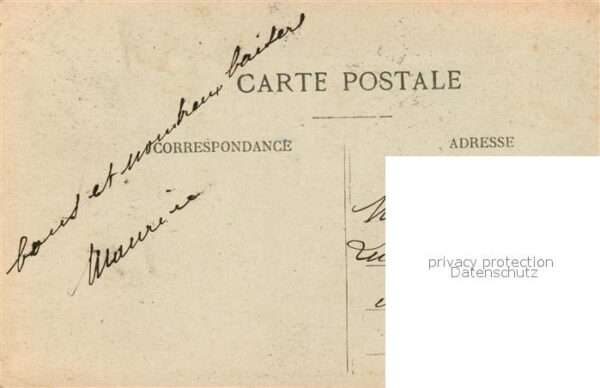 CARTE POSTALE
CORRESPONDANCE
ADRESSE
bons et nombreux baisers
Maurice
privacy protection
Datenschutz